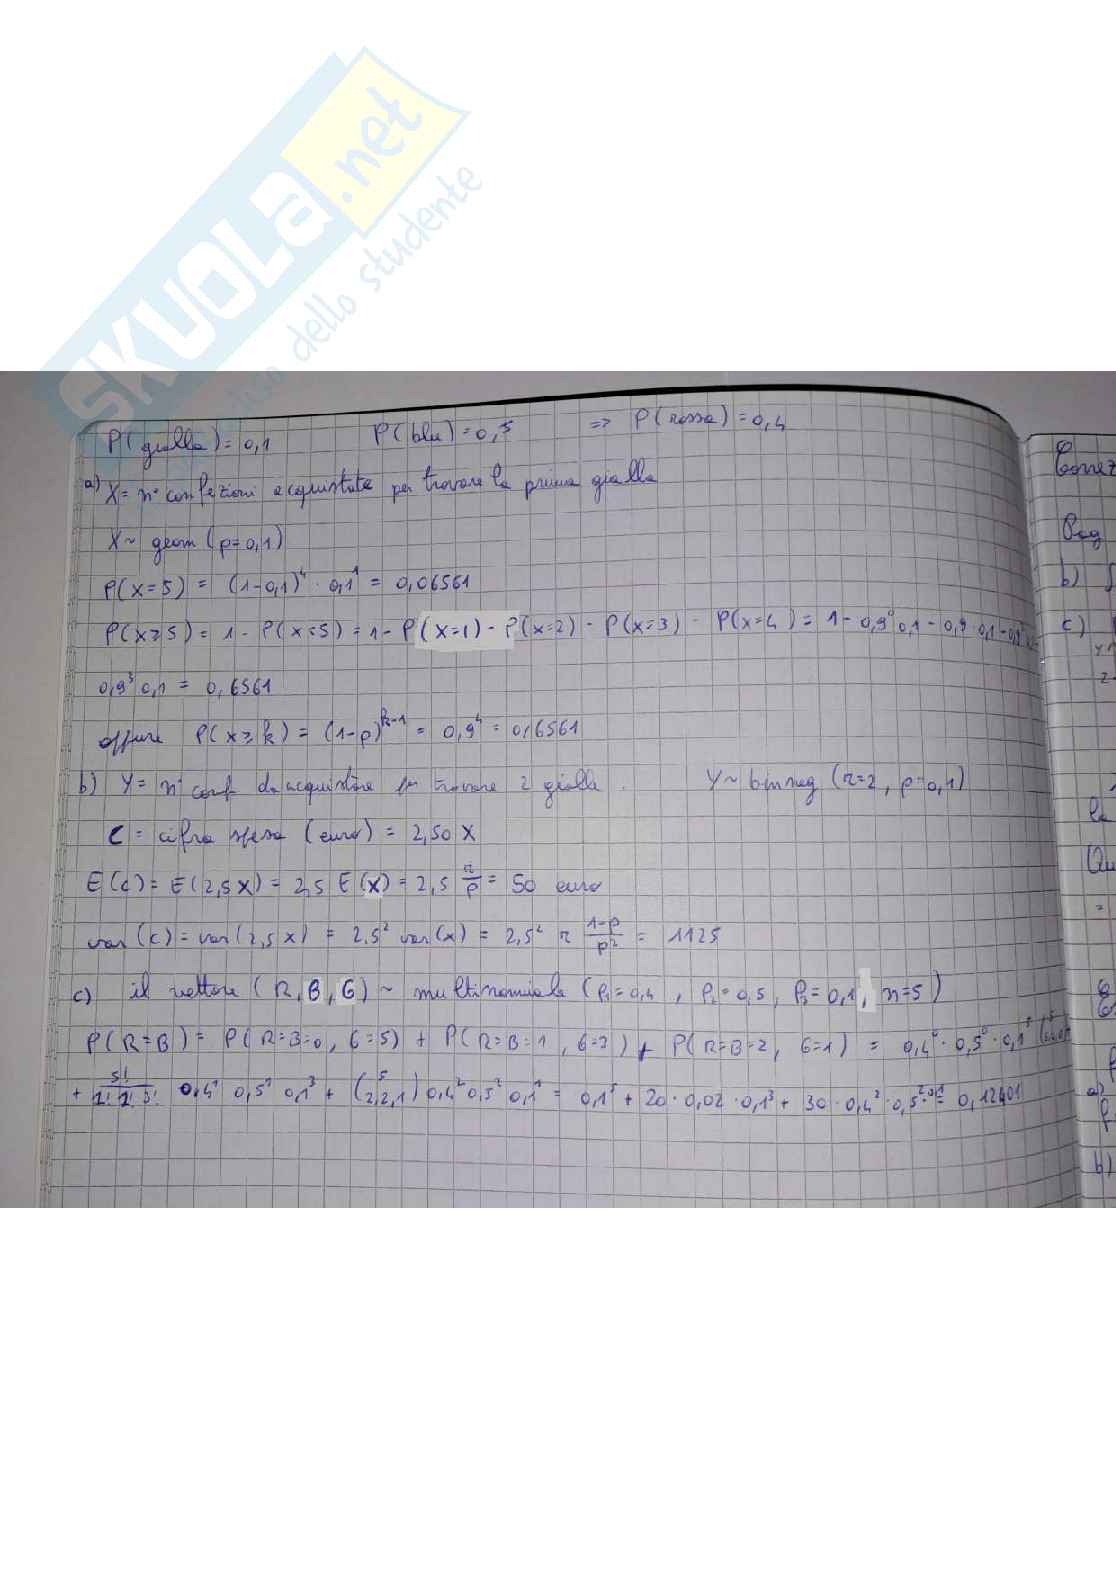 SKUOLA.net
dello studente
P(gialla) = 0,1 P(blu) = 0,5 => P(rossa) = 0,4
a) X = n° confezioni acquistate per trovare la prima gialla
X ~ geom (p=0,1)
P(X=5) = (1-0,1)⁴ · 0,1¹ = 0,06561
P(X≥5) = 1 - P(X=5) = 1 - P(X=1) - P(X=2) - P(X=3) - P(X=4) = 1 - 0,9⁰ 0,1 - 0,9 · 0,1 - 0,9²
0,9³ 0,1 = 0,6561
oppure P(X≥k) = (1-p)^(k-1) = 0,9⁴ = 0,6561
b) Y = n° conf da acquistare per trovare 2 gialle. Y ~ bin neg (r=2, p=0,1)
C = cifra spesa (euro) = 2,50 X
E(C) = E(2,5 X) = 2,5 E(X) = 2,5 r/p = 50 euro
var(C) = var(2,5 X) = 2,5² var(X) = 2,5² r (1-p)/p² = 1125
c) il vettore (R, B, G) ~ multinomiale (p₁=0,4, p₂=0,5, p₃=0,1, n=5)
P(R=B) = P(R=B=0, G=5) + P(R=B=1, G=3) + P(R=B=2, G=1) = 0,4⁰ · 0,5⁰ · 0,1⁵
+ 5!/(1! 1! 3!) 0,4¹ 0,5¹ 0,1³ + (5 2,2,1) 0,4² 0,5² 0,1¹ = 0,1⁵ + 20 · 0,02 · 0,1³ + 30 · 0,4² · 0,5² · 0,1 = 0,12401
Pag
b)
c)
la
a)
b)